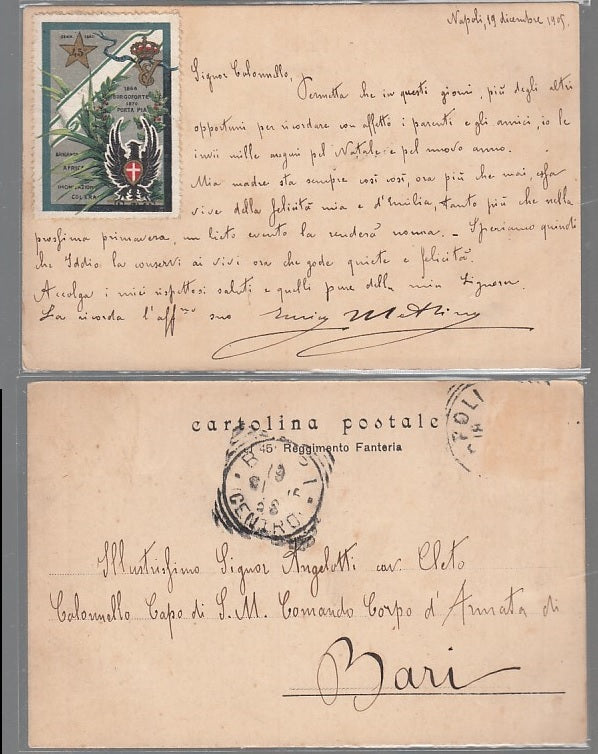 Napoli, 19 dicembre 1905.
45
1866
BORGOFORTE
1870
PORTA PIA
AFRICA
COLERA
Signor Colonnello,
Permetta che in questi giorni, più degli altri
opportuni per ricordare con affetto i parenti e gli amici, io le
invii mille auguri pel Natale e pel nuovo anno.
Mia madre sta sempre così così, ora più che mai, essa
vive della felicità mia e d'Emilia, tanto più che nella
prossima primavera, un lieto evento la renderà nonna. - Speriamo quindi
che Iddio la conservi ai vivi ora che gode quiete e felicità.
Accolga i miei rispettosi saluti e quelli pure della mia Signora
La ricorda l'aff.mo suo
cartolina postale
45° Reggimento Fanteria
POLI
CENTRO
Illustrissimo Signor Angelotti cav. Cleto
Colonnello Capo di S. M. Comando Corpo d'Armata di
Bari